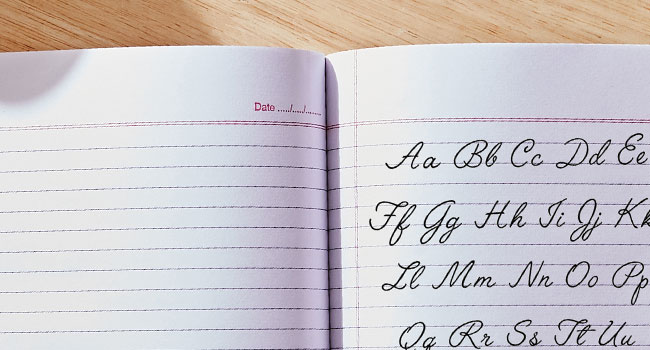 Date ...../...../........
Aa Bb Cc Dd Ee
Ff Gg Hh Ii Jj Kk
Ll Mm Nn Oo Pp
Qq Rr Ss Tt Uu